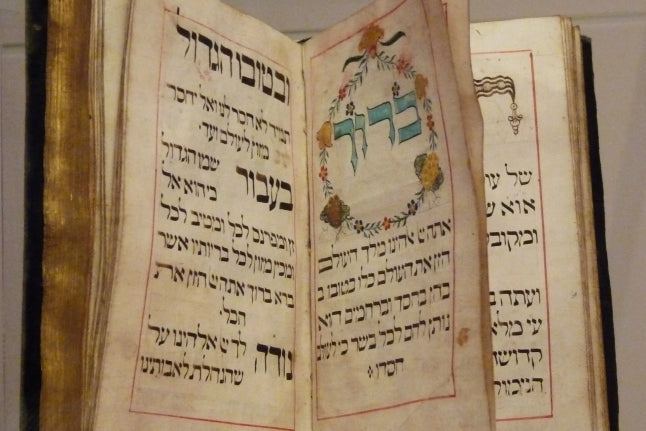 של
ומקובל
ועתה
קדושת
ברוך
אתה יי אהינו מלך העולם
הזן את העולם כלו בטובו ב
בחן בחסד וברחמים הוא
נותן לחם לכל בשר כי לעולם
חסדו
ובטובו הגדול
תמיד לא חסר לנו ואל יחסר
מזון לעולם ועד.
בעבור שמו הגדול
כי הוא אל
זן ומפרנס לכל ומטיב לכל
ומכין מזון לכל בריותיו אשר
ברא ברוך אתה יי הזן את
הכל
נודה לך יי אלהינו על
שהנחלת לאבותינו